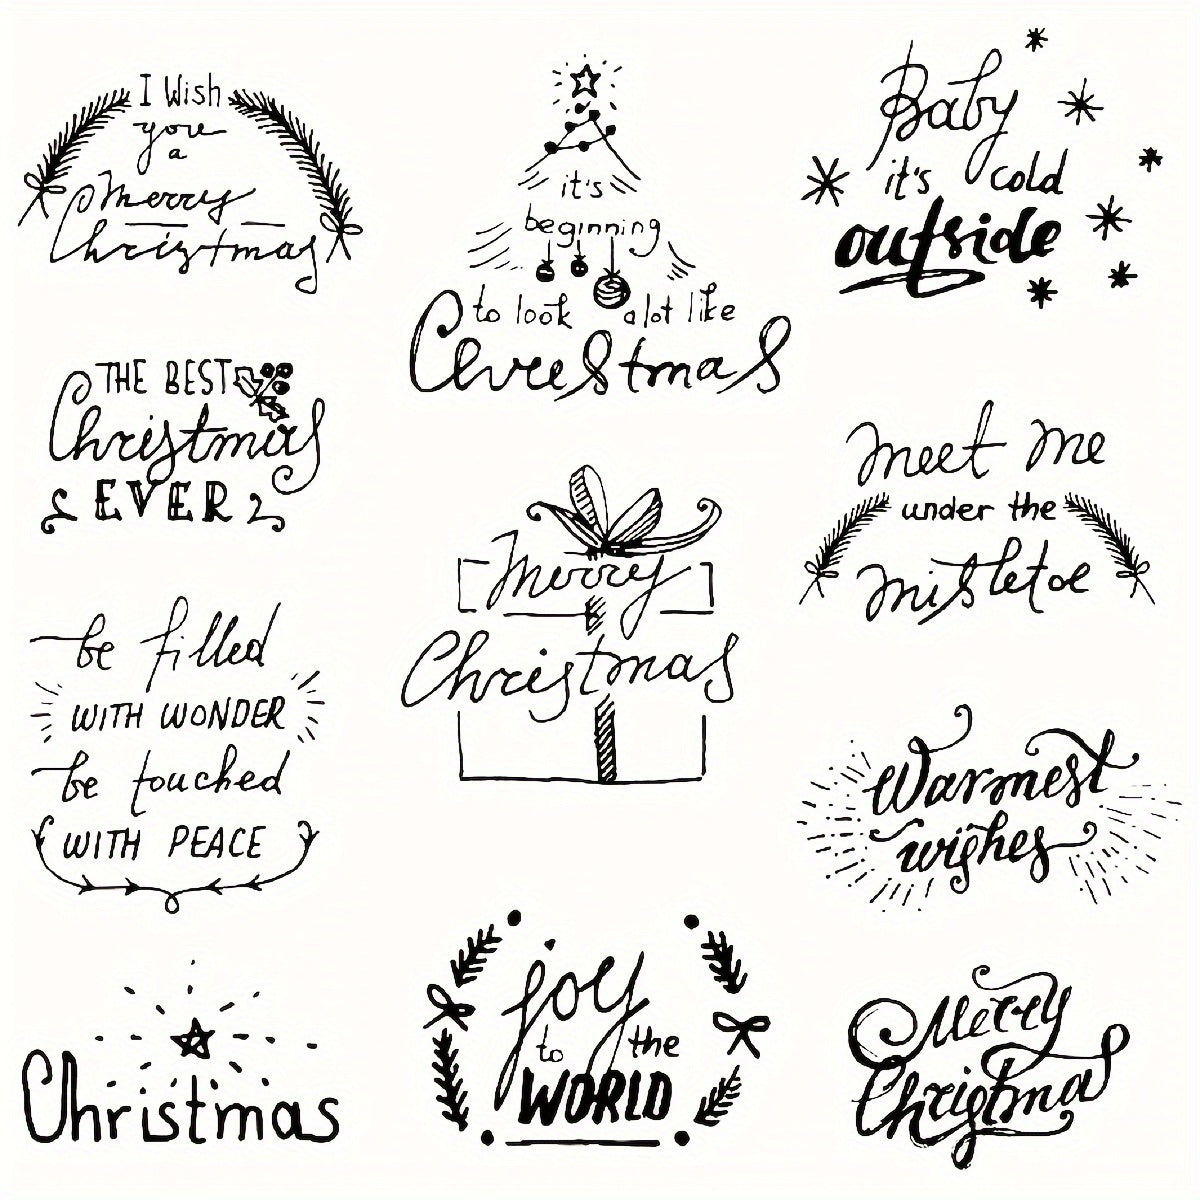 I Wish
you
a
Merry
Christmas
THE BEST
Christmas
EVER
be filled
WITH WONDER
be touched
WITH PEACE
Christmas
it's
beginning
to look a lot like
Christmas
Merry
Christmas
joy
to the
WORLD
Baby
it's cold
outside
meet me
under the
mistletoe
Warmest
wishes
Merry
Christmas